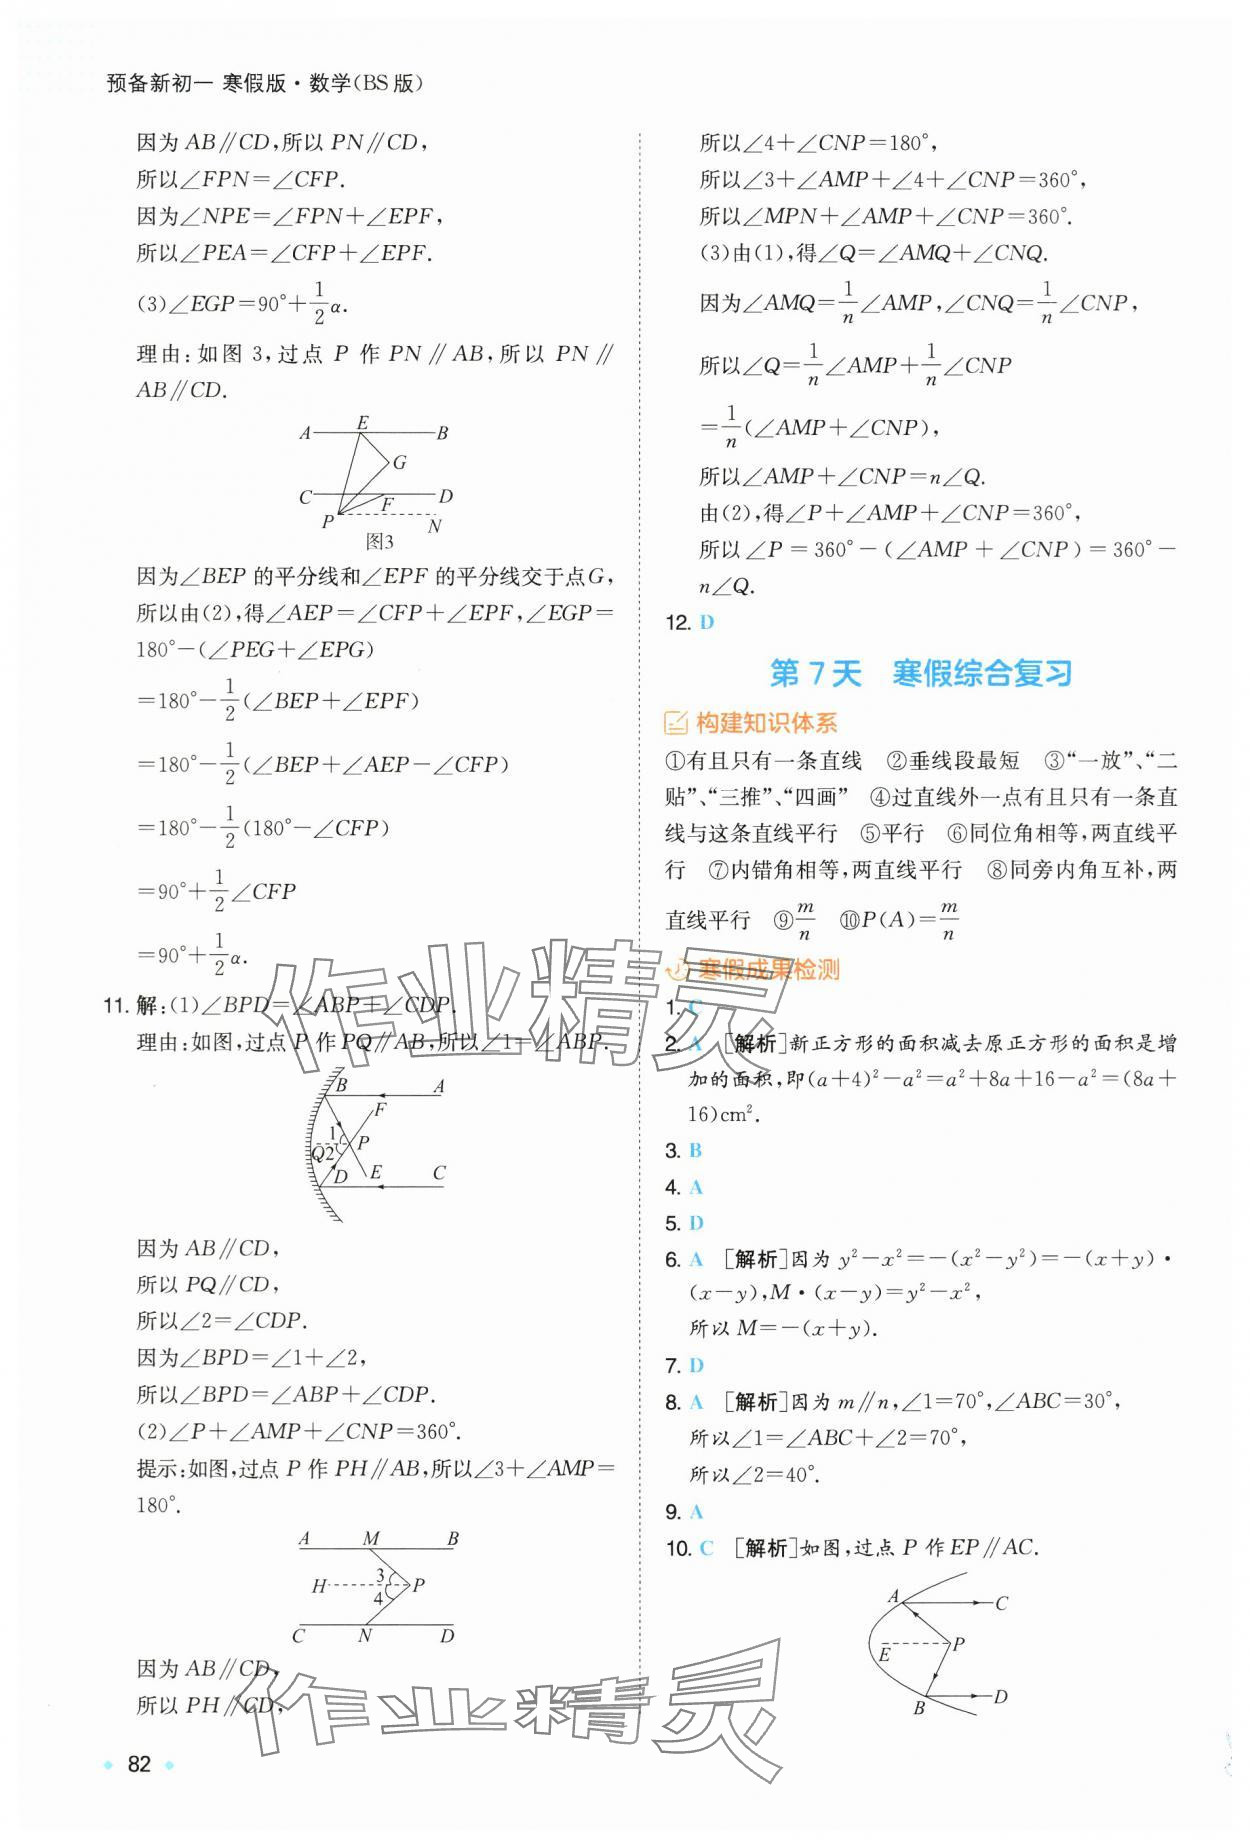 预备新初一 寒假版·数学(BS版)
因为AB∥CD,所以PN∥CD,
所以∠FPN=∠CFP.
因为∠NPE=∠FPN+∠EPF,
所以∠PEA=∠CFP+∠EPF.
(3)∠EGP=90°+1/2α.
理由:如图3,过点P作PN∥AB,所以PN∥
AB∥CD.
A E B
G
C F D
P N
图3
因为∠BEP的平分线和∠EPF的平分线交于点G,
所以由(2),得∠AEP=∠CFP+∠EPF,∠EGP=
180°-(∠PEG+∠EPG)
=180°-1/2(∠BEP+∠EPF)
=180°-1/2(∠BEP+∠AEP-∠CFP)
=180°-1/2(180°-∠CFP)
=90°+1/2∠CFP
=90°+1/2α.
11. 解:(1)∠BPD=∠ABP+∠CDP.
理由:如图,过点P作PQ∥AB,所以∠1=∠ABP.
B A
F
1 P
Q2
D E C
因为AB∥CD,
所以PQ∥CD,
所以∠2=∠CDP.
因为∠BPD=∠1+∠2,
所以∠BPD=∠ABP+∠CDP.
(2)∠P+∠AMP+∠CNP=360°.
提示:如图,过点P作PH∥AB,所以∠3+∠AMP=
180°.
A M B
H 3 P
4
C N D
因为AB∥CD,
所以PH∥CD,
82
所以∠4+∠CNP=180°,
所以∠3+∠AMP+∠4+∠CNP=360°,
所以∠MPN+∠AMP+∠CNP=360°.
(3)由(1),得∠Q=∠AMQ+∠CNQ.
因为∠AMQ=1/n∠AMP,∠CNQ=1/n∠CNP,
所以∠Q=1/n∠AMP+1/n∠CNP
=1/n(∠AMP+∠CNP),
所以∠AMP+∠CNP=n∠Q.
由(2),得∠P+∠AMP+∠CNP=360°,
所以∠P=360°-(∠AMP+∠CNP)=360°-
n∠Q.
12. D
第7天 寒假综合复习
构建知识体系
①有且只有一条直线 ②垂线段最短 ③“一放”、“二
贴”、“三推”、“四画” ④过直线外一点有且只有一条直
线与这条直线平行 ⑤平行 ⑥同位角相等,两直线平
行 ⑦内错角相等,两直线平行 ⑧同旁内角互补,两
直线平行 ⑨m/n ⑩P(A)=m/n
寒假成果检测
1. C
2. A [解析]新正方形的面积减去原正方形的面积是增
加的面积,即(a+4)²-a²=a²+8a+16-a²=(8a+
16)cm².
3. B
4. A
5. D
6. A [解析]因为y²-x²=-(x²-y²)=-(x+y)·
(x-y),M·(x-y)=y²-x²,
所以M=-(x+y).
7. D
8. A [解析]因为m∥n,∠1=70°,∠ABC=30°,
所以∠1=∠ABC+∠2=70°,
所以∠2=40°.
9. A
10. C [解析]如图,过点P作EP∥AC.
A C
E P
B D
作业精灵
作业精灵